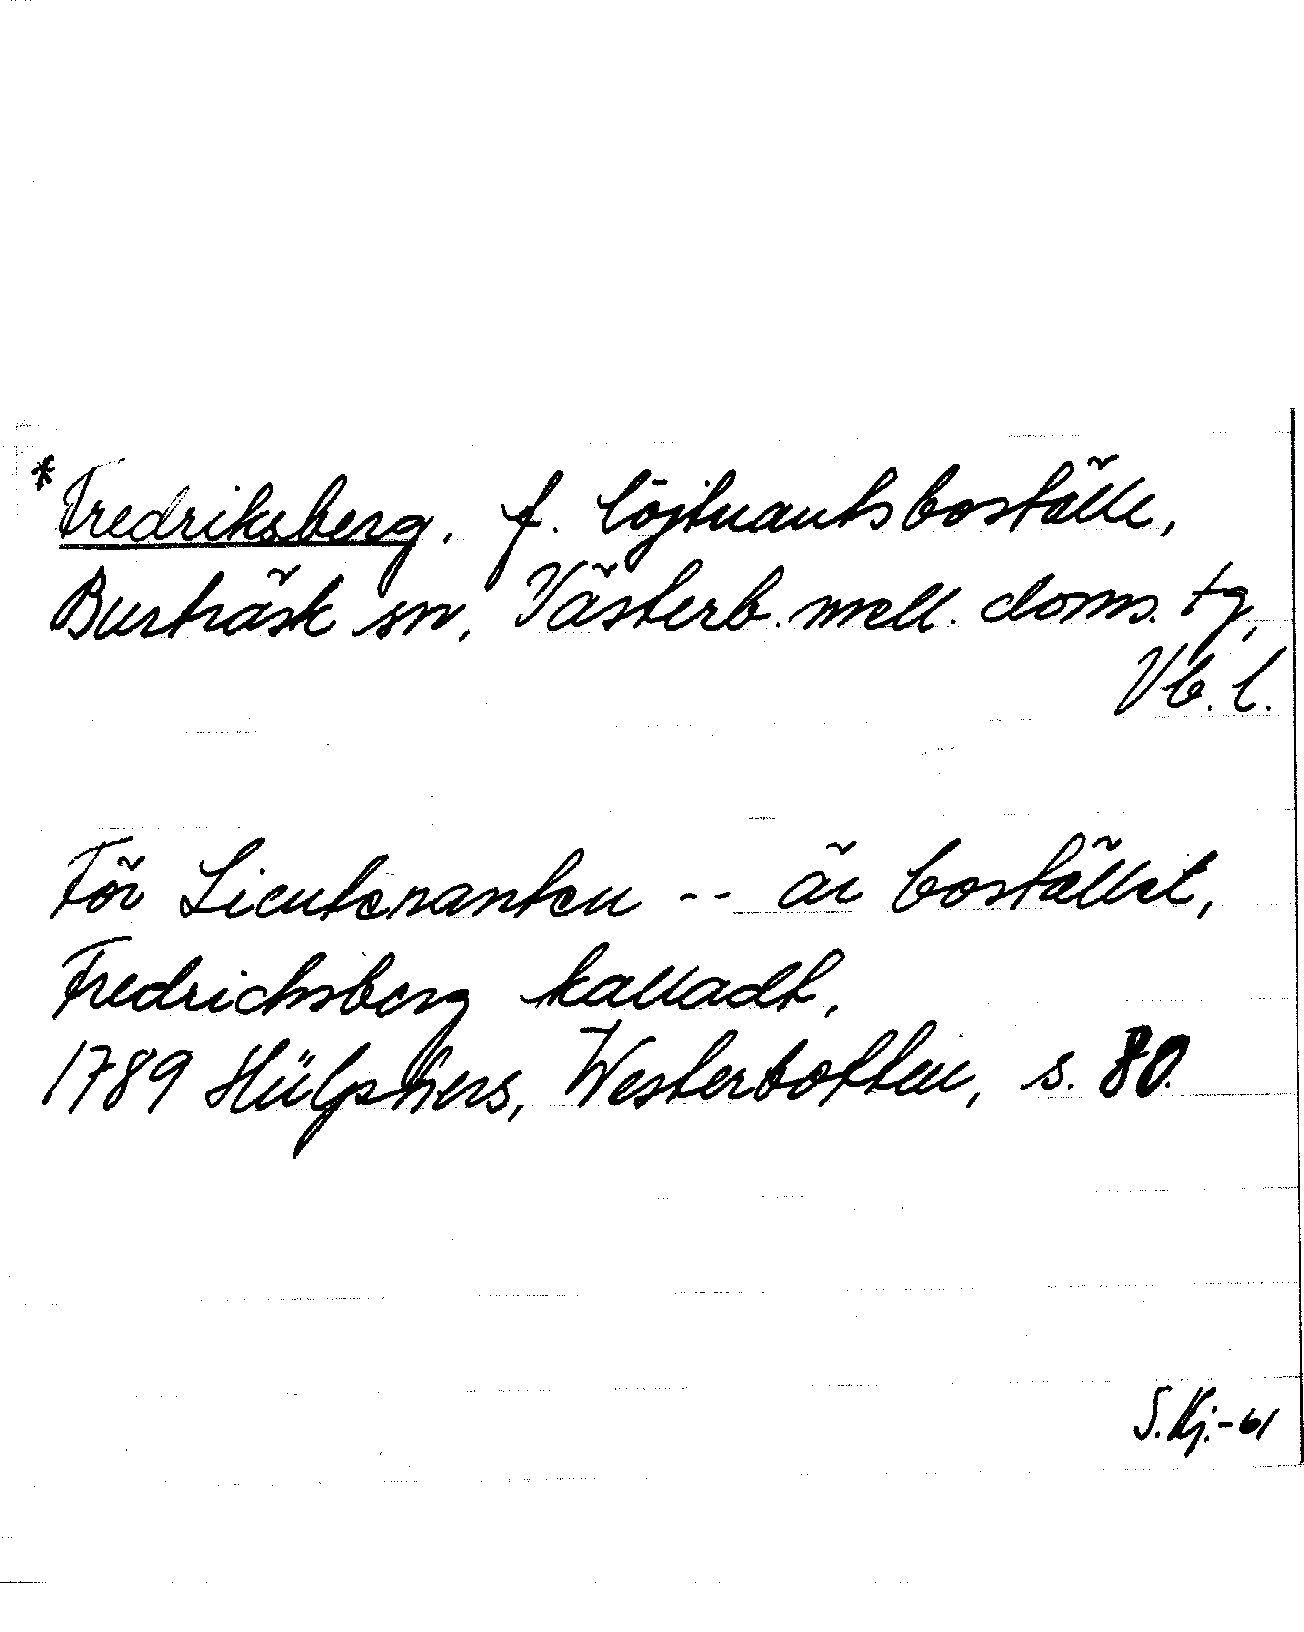 *Fredriksberg, f. löjtnantsboställe,
Burträsk sn, Västerb. mell. doms. tg,
Vb. l.
För Lieutenanten -- är bostället,
Fredrichsberg kalladt,
1789 Hülphers, Westerbotten, s. 80.
S.Kj.-61